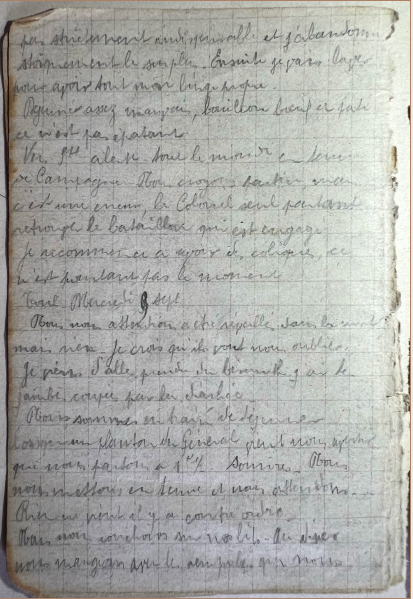 pas strictement indispensable et j'abandonne
stoïquement le surplus. Ensuite je vais laver
pour avoir tout mon linge propre.
Déjeuner assez mauvais, bouillon bœuf et pate
ce n'est pas épatant
Vers 5h alerte tout le monde en tenue
de Campagne Nous croyons partir mais
c'est une erreur, le Colonel seul partant
retrouve le bataillon qui est engagé
Je recommence a avoir des coliques, ce
n'est pourtant pas le moment
Toul Mercredi 9 sept
Nous nous attendions a être réveillé dans la nuit
mais rien. Je crois qu'ils vont nous oublier.
Je viens d'aller prendre du bismuth j'ai les
jambes coupées par la diarrhée
Nous sommes en train de déjeuner
lorsqu'un planton du Général vient nous
que nous partons a 1h ½ Nous
nous mettons en tenue et nous attendons.
Rien ne vient il y a contre ordre.
Nous nous couchons sur nos lits. Au diner
nous mangeons avec le qui nous